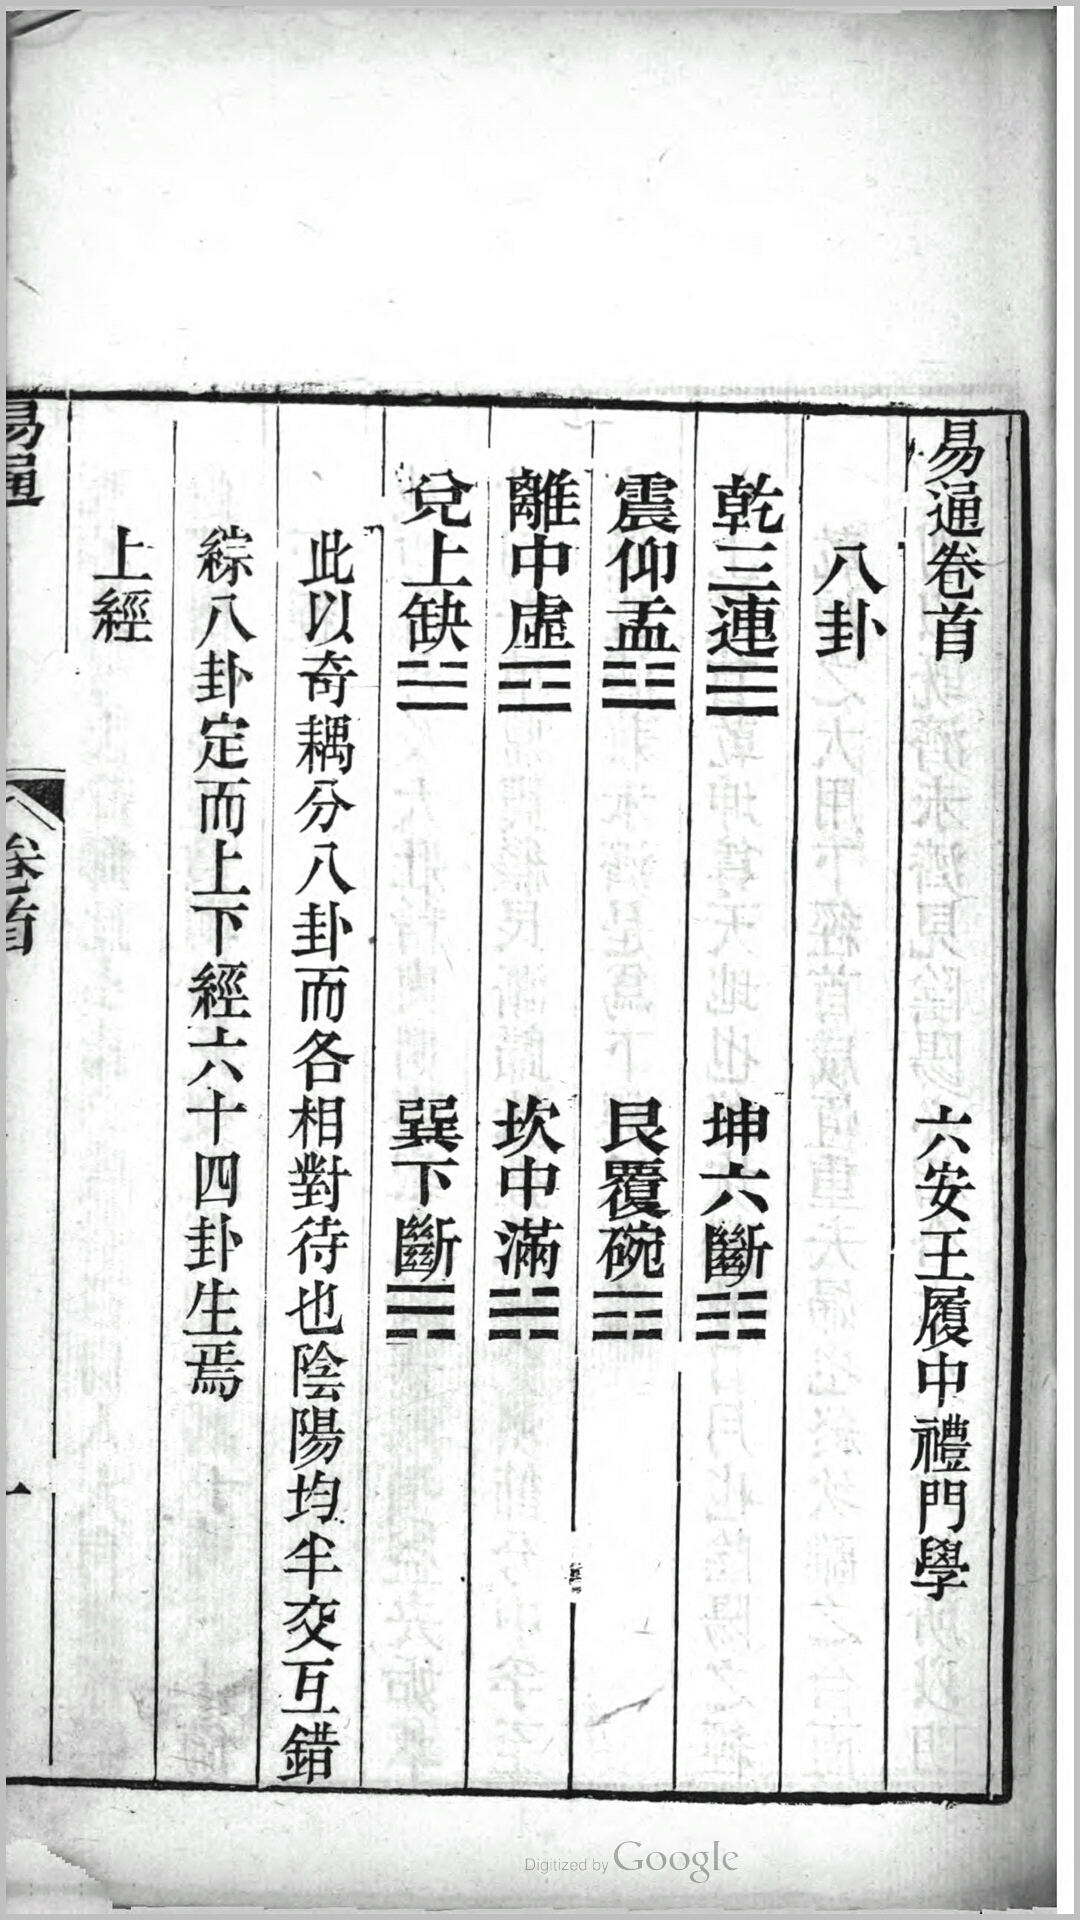 易通卷首 六安王履中禮門學
八卦
乾三連☰ 坤六斷☷
震仰盂☳ 艮覆碗☶
離中虛☲ 坎中滿☵
兌上缺☱ 巽下斷☴
此以奇耦分八卦而各相對待也陰陽均半交互錯
綜八卦定而上下經六十四卦生焉
上經
易通 卷首 一
Digitized by Google